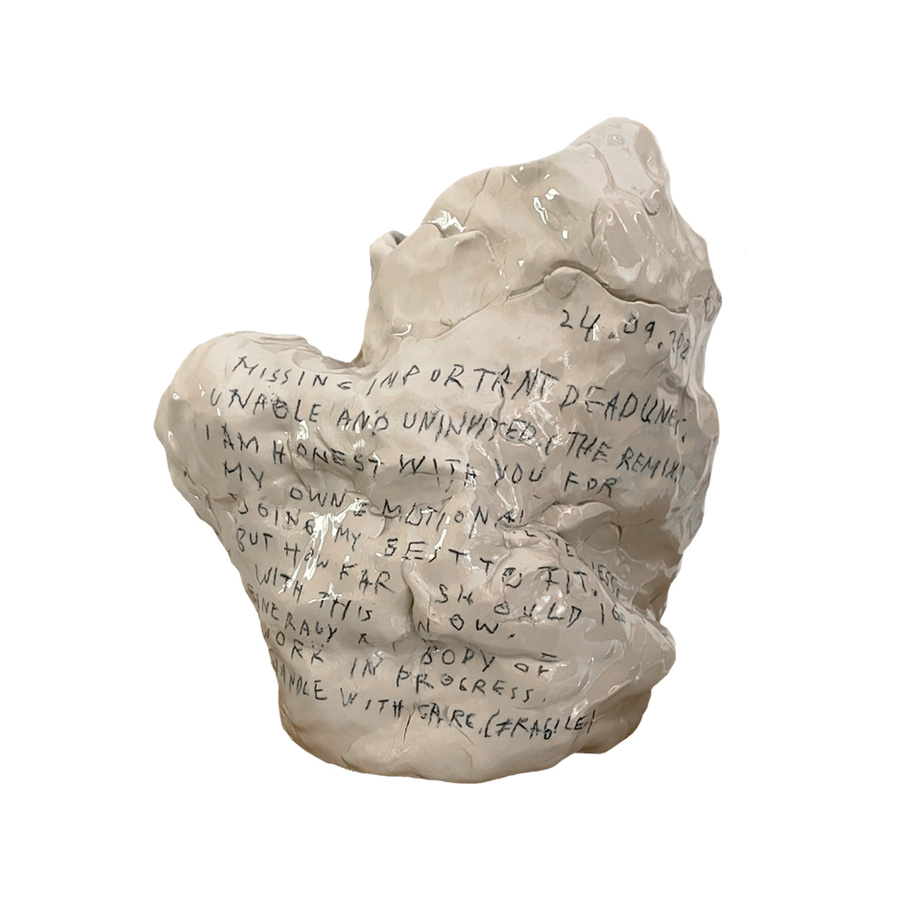 24.09.202
MISSING IMPORTANT DEADLINES.
UNABLE AND UNINVITED. (THE REMIX)
I AM HONEST WITH YOU FOR
MY OWN EMOTIONAL
DOING MY BEST TO FIT.
BUT HOW FAR SHOULD I GO
WITH THIS NOW.
BODY OF
WORK IN PROGRESS.
HANDLE WITH CARE. (FRAGILE)